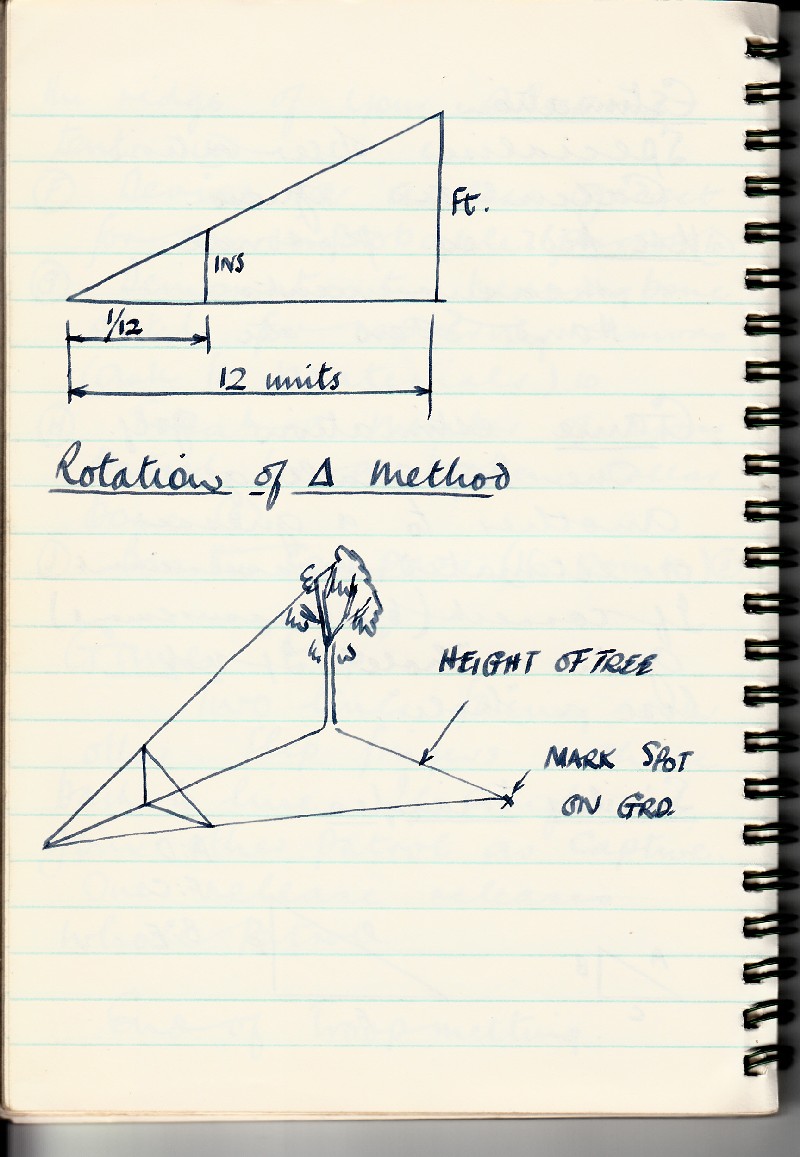 Ft.
INS
1/12
12 units
Rotation of Δ Method
HEIGHT OF TREE
MARK SPOT
ON GRD.